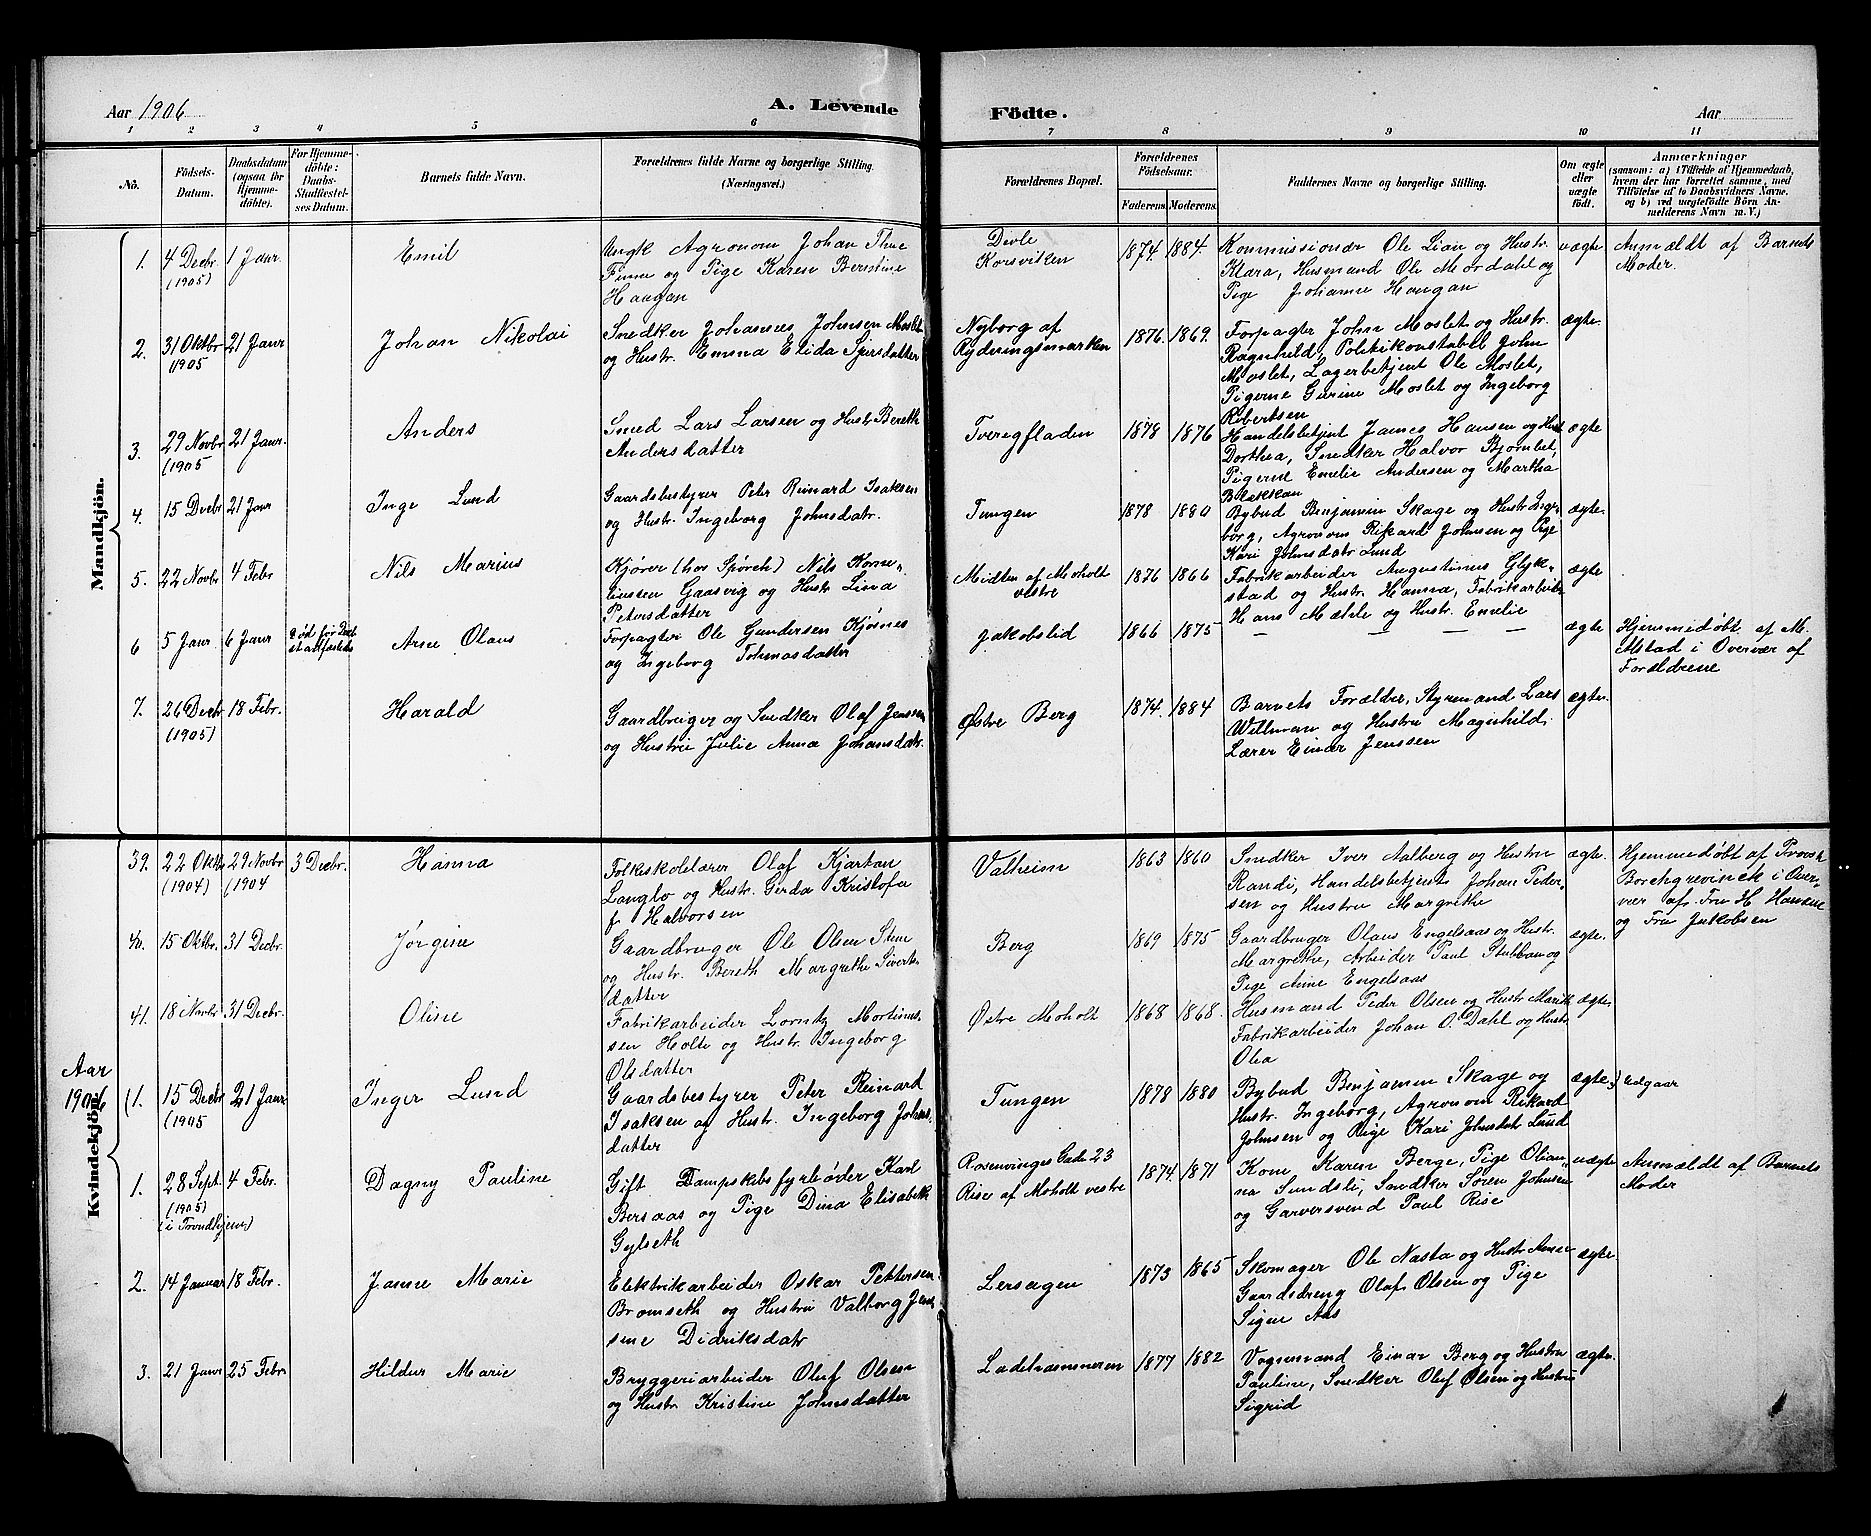 Aar 1906
A. Levende
Födte.
Aar
1 2 3 4 5 6 7 8 9 10 11
No.
Födsels-
Datum.
Daabsdatum
(ogsaa for
Hjemme-
döbte).
For Hjemme-
döbte:
Daabs-
Stadfæstel-
ses Datum.
Barnets fulde Navn.
Forældrenes fulde Navne og borgerlige Stilling.
(Næringsvei.)
Forældrenes Bopæl.
Forældrenes
Födselsaar.
Faderens. Moderens.
Faddernes Navne og borgerlige Stilling.
Om ægte
eller
uægte
födt.
Anmærkninger
(saasom: a) i Tilfælde af Hjemmedaab,
hvem der har forrettet samme, med
Tilföielse af to Daabsvidners Navne.
og b) ved uægtefödte Börn An-
melderens Navn m. V.)
Mandkjön.
1. 4 Decbr (1905)
1 Janr.
Emil
Ungk Agronom Johan Thue
Finne og Pige Karen Berntine
Haugan
Devle
Korsviken
1874. 1884.
Kommissionær Ole Lian og Hustr.
Klara, Husmand Ole Mordahl og
Pige Johanne Haugan
uægte
Anmældt af Barnets
Moder.
2. 31 Oktbr (1905
21 Janr
Johan Nikolai
Snedker Johannes Johnsen Moslet
og Hustr. Emma Elida Sjursdatter
Nyborg af
Ryderingsmarken
1876. 1869.
Forpagter John Moslet og Hustr.
Ragnhild, Politikonstabel John
Moslet, Lagerbetjent Ole Moslet,
Pigerne Gurine Moslet og Ingeborg
Robertsen
ægte.
3. 29 Novbr (1905
21 Janr.
Anders
Smed Lars Larsen og Hustr Bereth
Andersdatter
Tveregfladen
1878 1876
Handelsbetjent James Hansen og Hust
Dorthea, Snedker Halvor Bjørnlet,
Pigerne Emelie Andersen og Martha
Blekkan
ægte
4. 15 Decbr
21 Janr
Inge Lund
Gaardsbestyrer Peter Reinard Isaksen
og Hustr. Ingeborg Johnsdatr.
Tungen
1878 1880
Bybud Benjamin Skage og Hustr Inge-
borg, Agronom Rikard Johnsen og Pige
Kari Johnsdatr Lund
ægte.
5. 22 Novbr
4 Febr
Nils Marius
Kjører (hos Spørch) Nils Korne-
liussen Gaasvig og Hustr Lina
Petersdatter
Midten af Moholt
vestre
1876 1866
Fabrikarbeider Augustinus Glyk-
stad og Hustr. Hanna, Fabrikarbeider
Hans Mæhle og Hustr. Emelie
ægte
6 5 Janr.
6 Janr
død før Daab
stadfæstedes
Arne Olaus
Forpagter Ole Gundersen Kjøsnes
og Ingeborg Tohmasdatter
Jakobslid
1866 1875
— — — —
ægte
Hjemmedøbt af M.
Alstad i Overvær af
Forældrene
7. 26 Decbr (1905)
18 Febr.
Harald
Gaardbruger og Snedker Olaf Jenssen
og Hustru Julie Anna Johansdatr.
Østre Berg
1874. 1884
Barnets Forældre, Styrmand Lars
Willman og Hustru Magnhild,
Lærer Einar Jenssen
ægte.
Kvindekjön.
39. 22 Oktbr (1904)
29 Novbr (1904
3 Decbr.
Hanna
Folkeskolelærer Olaf Kjartan
Langlo og Hustr. Gerda Kristofa
f. Halvorsen
Valheim
1863 1860
Snedker Iver Aalberg og Hustru
Randi, Handelsbetjent Johan Peder-
sen og Hustru Margrethe
ægte.
Hjemmedøbt af Provst
Borchgrevinck i Over-
vær af Fru H. Hansen
og Fru Jakobsen
40. 15 Oktbr.
31 Decbr.
Jørgine
Gaardbruger Ole Olsen Stene
og Hustr. Bereth Margrethe Siverts
datter
Berg
1869 1875
Gaardbruger Olaus Engelsaas og Hustr.
Margrethe, Arbeider Paul Stubban og
Pige Anne Engelsaas
ægte.
41. 18 Novbr
31 Decbr.
Oline
Fabrikarbeider Lorntz Mortinus-
sen Holte og Hustr. Ingeborg
Olsdatter
Østre Moholt
1868 1868.
Husmand Peder Olsen og Hustr Marit,
Fabrikarbeider Johan O. Dahl og Hustr.
Olea
ægte
Aar
1906
(1. 15 Decbr (1905
21 Janr
Inger Lund
Gaardsbestyrer Peter Reinard
Isaksen og Hustr. Ingeborg Johns-
datter
Tungen
1878 1880
Bybud Benjamin Skage og
Hustr. Ingeborg, Agronom Rikard
Johnsen og Pige Kari Johnsdatr Lund
ægte.)
udgaar
1. 28 Sept. (1905)
(i Trondhjem)
4 Febr.
Dagny Pauline
Gift Dampskibsfyrbøder Karl
Bersaas og Pige Dina Elisabeth
Gylseth
Rosenvinges Gade 23
Rise af Moholt vestre
1874. 1871
Kone Karen Berge, Pige Olian-
na Sundsli, Snedker Søren Johnsen
og Garversvend Paul Rise
uægte
Anmældt af Barnets
Moder
2. 14 Januar
18 Febr.
Janne Marie
Elektrikarbeider Oskar Pettersen
Bromseth og Hustru Valborg Jen-
sine Didriksdatr
Lersagen
1873 1865
Skomager Ole Nasta og Hustr Anne
Gaardsdreng Olaf Olsen og Pige
Signe Aas
ægte
3. 21 Janr
25 Febr
Hildur Marie
Bryggeriarbeider Oluf Olsen
og Hustr Kristine Johnsdatter
Ladehammeren
1877 1882
Vognmand Einar Berg og Hustru
Pauline, Snedker Oluf Olsen og Hustru
Sigrid
ægte.